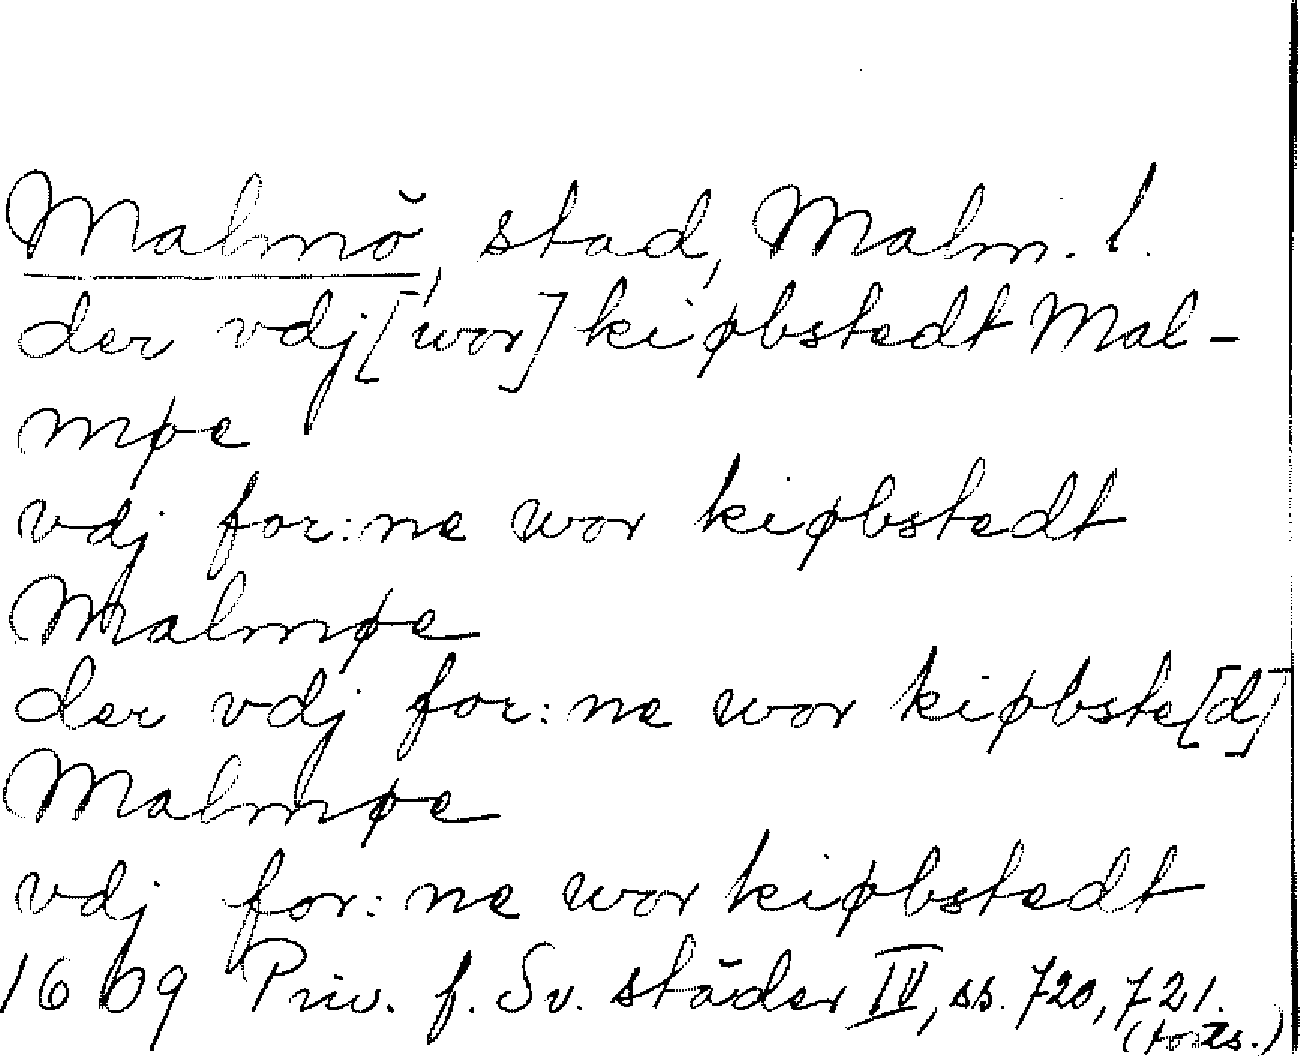 Malmö, stad, Malm. l.
der vdj [wor] kiøbstedt Mal-
møe
vdj for:ne wor kiøbstedt
Malmøe
der vdj for:ne wor kiøbste[d]
Malmøe
vdj for:ne wor kiøbstedt
1609 Priv. f. Sv. städer IV, ss. 720, 721.
(forts.)